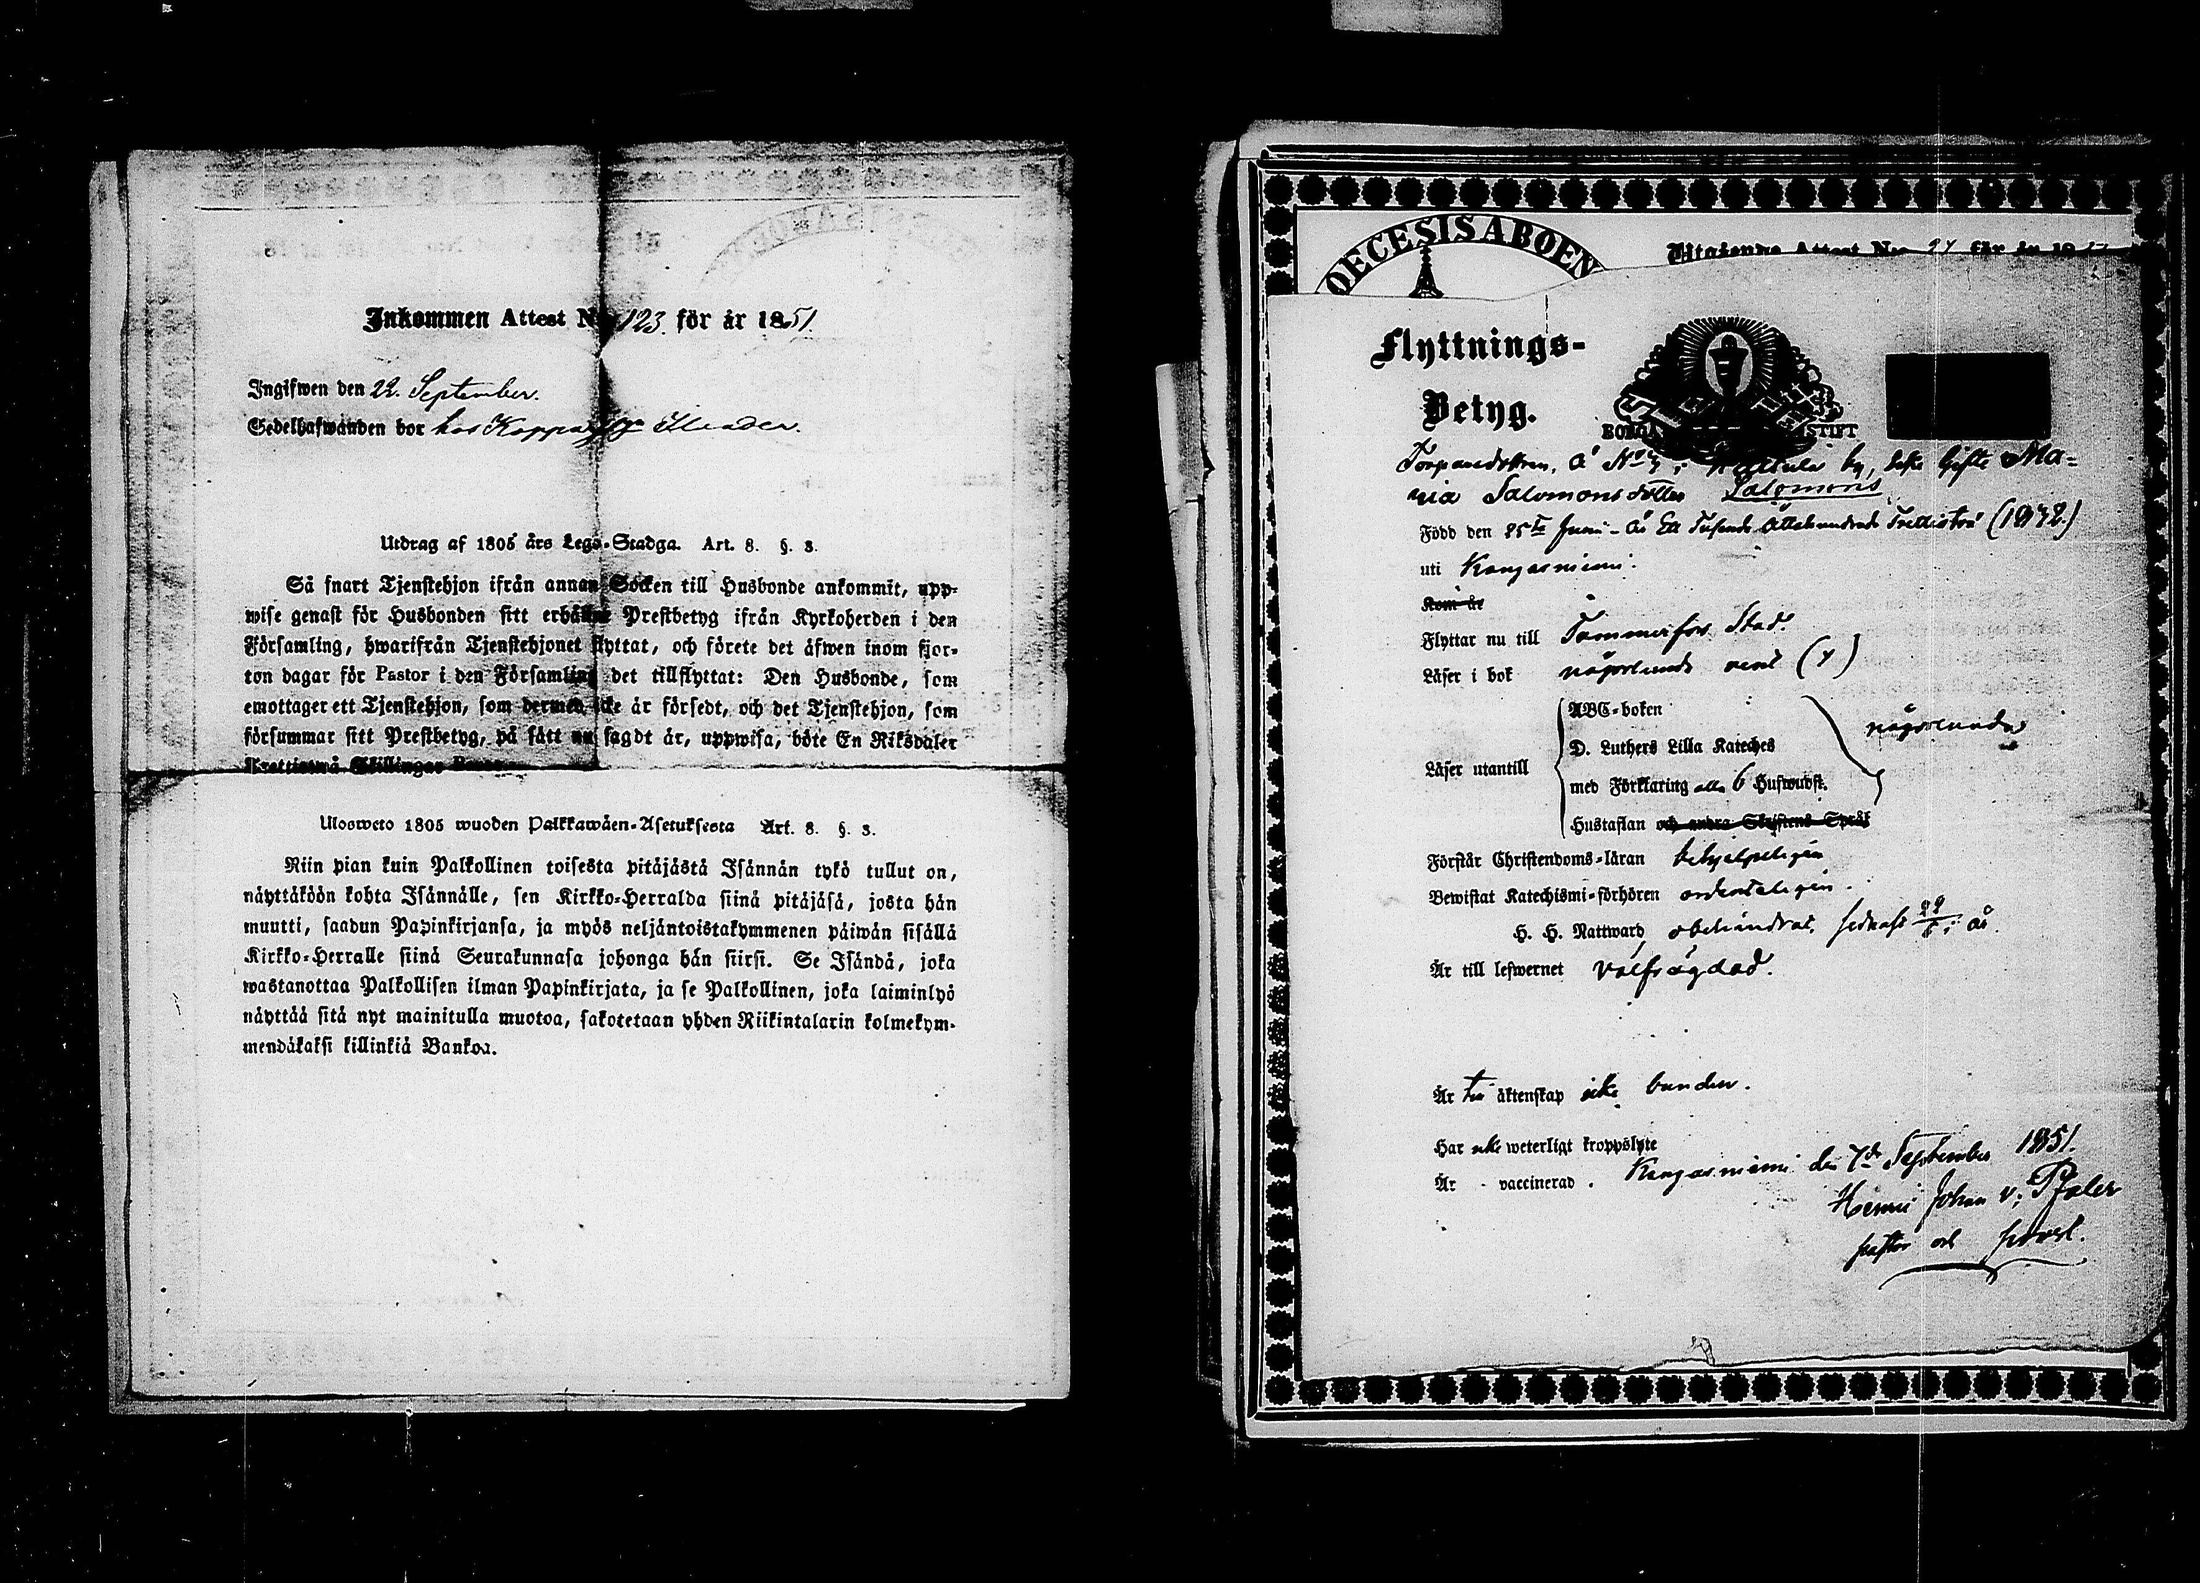 Inkommen Attest No 123. för år 1851.
Ingifwen den 22. September.
Sedelhafwanden bor hos
Utdrag af 1805 års Lego-Stadga. Art. 8. §. 3.
Så snart Tjenstehjon ifrån annan Socken till Husbonde ankommit, upp-
wise genast för Husbonden sitt erhållne Prestbetyg ifrån Kyrkoherden i den
Församling, hwarifrån Tjenstehjonet flyttat, och förete det äfwen inom fjor-
ton dagar för Pastor i den Församling det tillflyttat: Den Husbonde, som
emottager ett Tjenstehjon, som dermed icke är försedt, och det Tjenstehjon, som
försummar sitt Prestbetyg, på sätt nu sagdt är, uppwisa, böte En Riksdaler
Trettiotwå Skillingar Banco.
Ulosweto 1805 wuoden Palkkawäen-Asetuksesta Art. 8. §. 3.
Niin pian kuin Palkollinen toisesta pitäjästä Isännän tykö tullut on,
näyttäköön kohta Isännälle, sen Kirkko-Herralda siinä pitäjäsä, josta hän
muutti, saadun Papinkirjansa, ja myös neljäntoistakymmenen päiwän sisällä
Kirkko-Herralle siinä Seurakunnasa johonga hän siirsi. Se Isändä, joka
wastanottaa Palkollisen ilman Papinkirjata, ja se Palkollinen, joka laiminlyö
näyttää sitä nyt mainitulla muotoa, sakotetaan yhden Riikintalarin kolmekym-
mendäkaksi killinkiä Bankoa.
OECESIS ABOEN
Utgående Attest No för år 18
Flyttnings-
Betyg.
BORGÅ STIFT
by, Ma-
ria Salomonsdotter Salomons
Född den 25te Juni - år Ett Tusende Åttahundrade Trettiotvå (1832.)
uti Kangasniemi.
Kom år
Flyttar nu till Tammerfors Stad.
Läser i bok någorlunda rent
Läser utantill
ABC-boken
D. Luthers Lilla Kateches
med Förklaring alla 6 Hufwudst.
Hustaflan och andra Skriftens Språk
någorlunda
Förstår Christendoms-läran behjelpeligen
Bewistat Katechismi-förhören ordenteligen.
H. H. Nattward obehindrad, sednast i år.
Är till lefwernet välfrägdad.
Är till äktenskap icke bunden.
Har icke weterligt kroppslyte
Är - vaccinerad.
Kangasniemi den 7de September 1851.
Henric Johan v: Pfaler
pastor och prost.